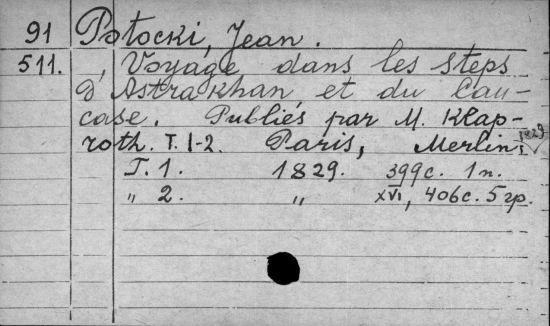 91 Potocki, Jean.
511. , Voyage dans les steps
d'Astrakhan et du Cau-
case. Publiés par M. Klap-
roth. T. 1-2. Paris, Merlin, 1829
T. 1. 1829. 399 c. 1 п.
„ 2. „ XVI, 406 c. 5 гр.